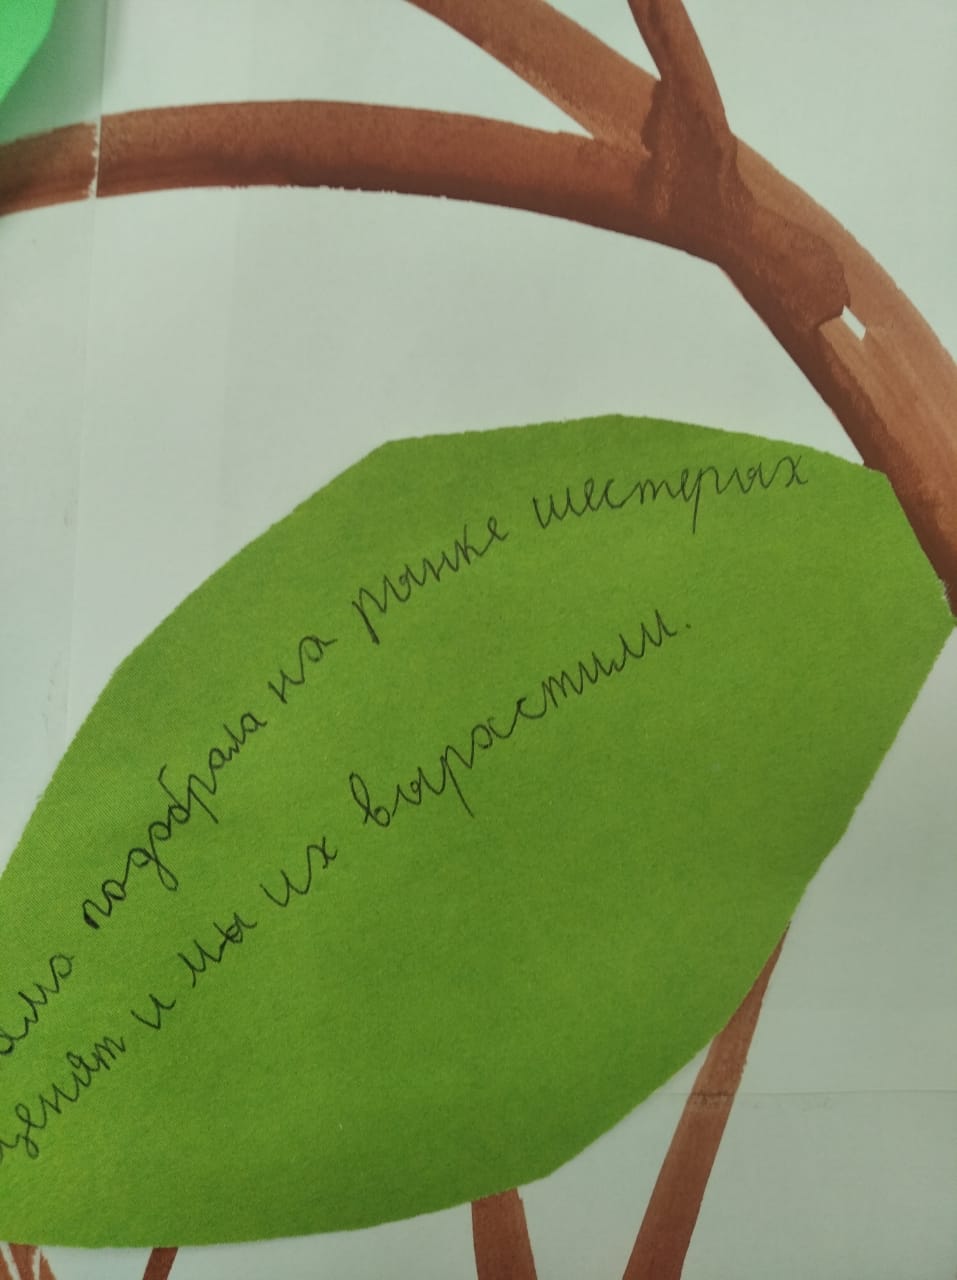 ама подобрала на рынке шестерых
щенят и мы их выростили.